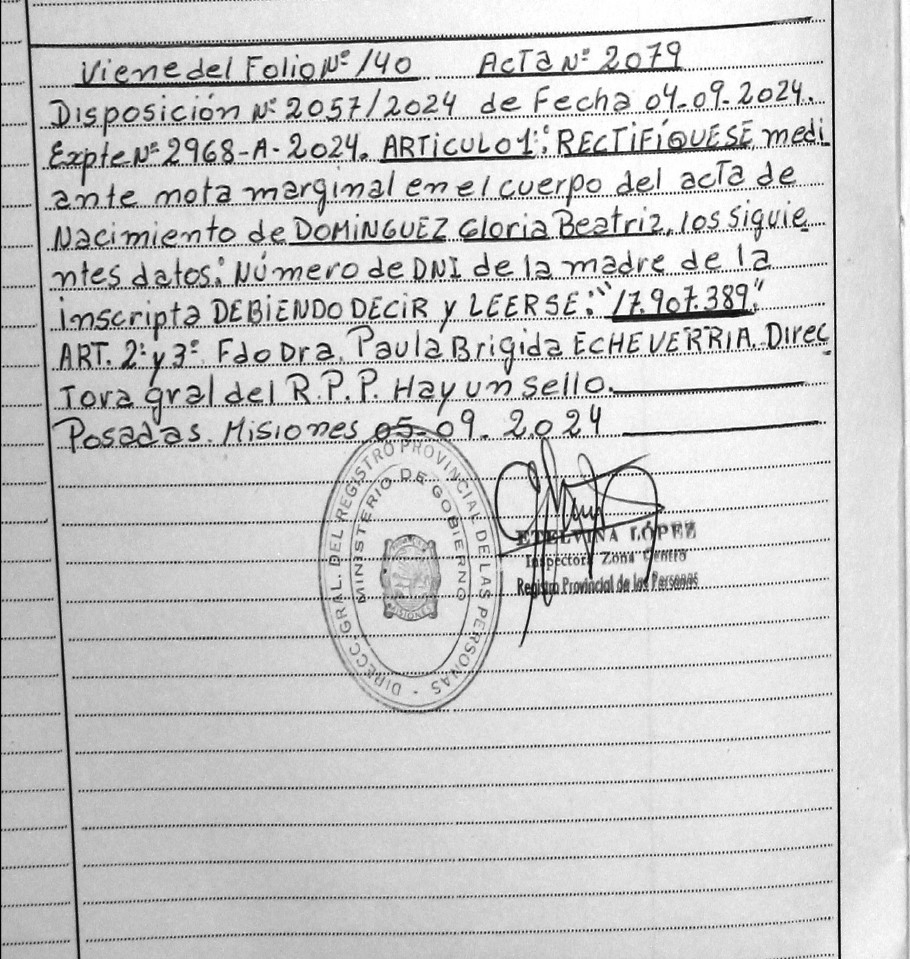 Viene del Folio Nº 140 Acta Nº 2079
Disposición Nº 2057/2024 de Fecha 04-09-2024.
Expte Nº 2968-A-2024. ARTICULO 1º: RECTIFÍQUESE medi
ante mota marginal en el cuerpo del acta de
Nacimiento de DOMINGUEZ Gloria Beatriz, los siguie
ntes datos: Número de DNI de la madre de la
inscripta DEBIENDO DECIR y LEERSE: "17.907.389"
ART. 2º y 3º Fdo Dra. Paula Brigida ECHEVERRIA. Direc
tora gral del R.P.P. Hay un sello.
Posadas. Misiones 05-09-2024
DIRECC. GRAL. DEL REGISTRO PROVINCIAL DE LAS PERSONAS
MINISTERIO DE GOBIERNO
MISIONES
ETELVINA LÓPEZ
Inspectora Zona Centro
Registro Provincial de las Personas